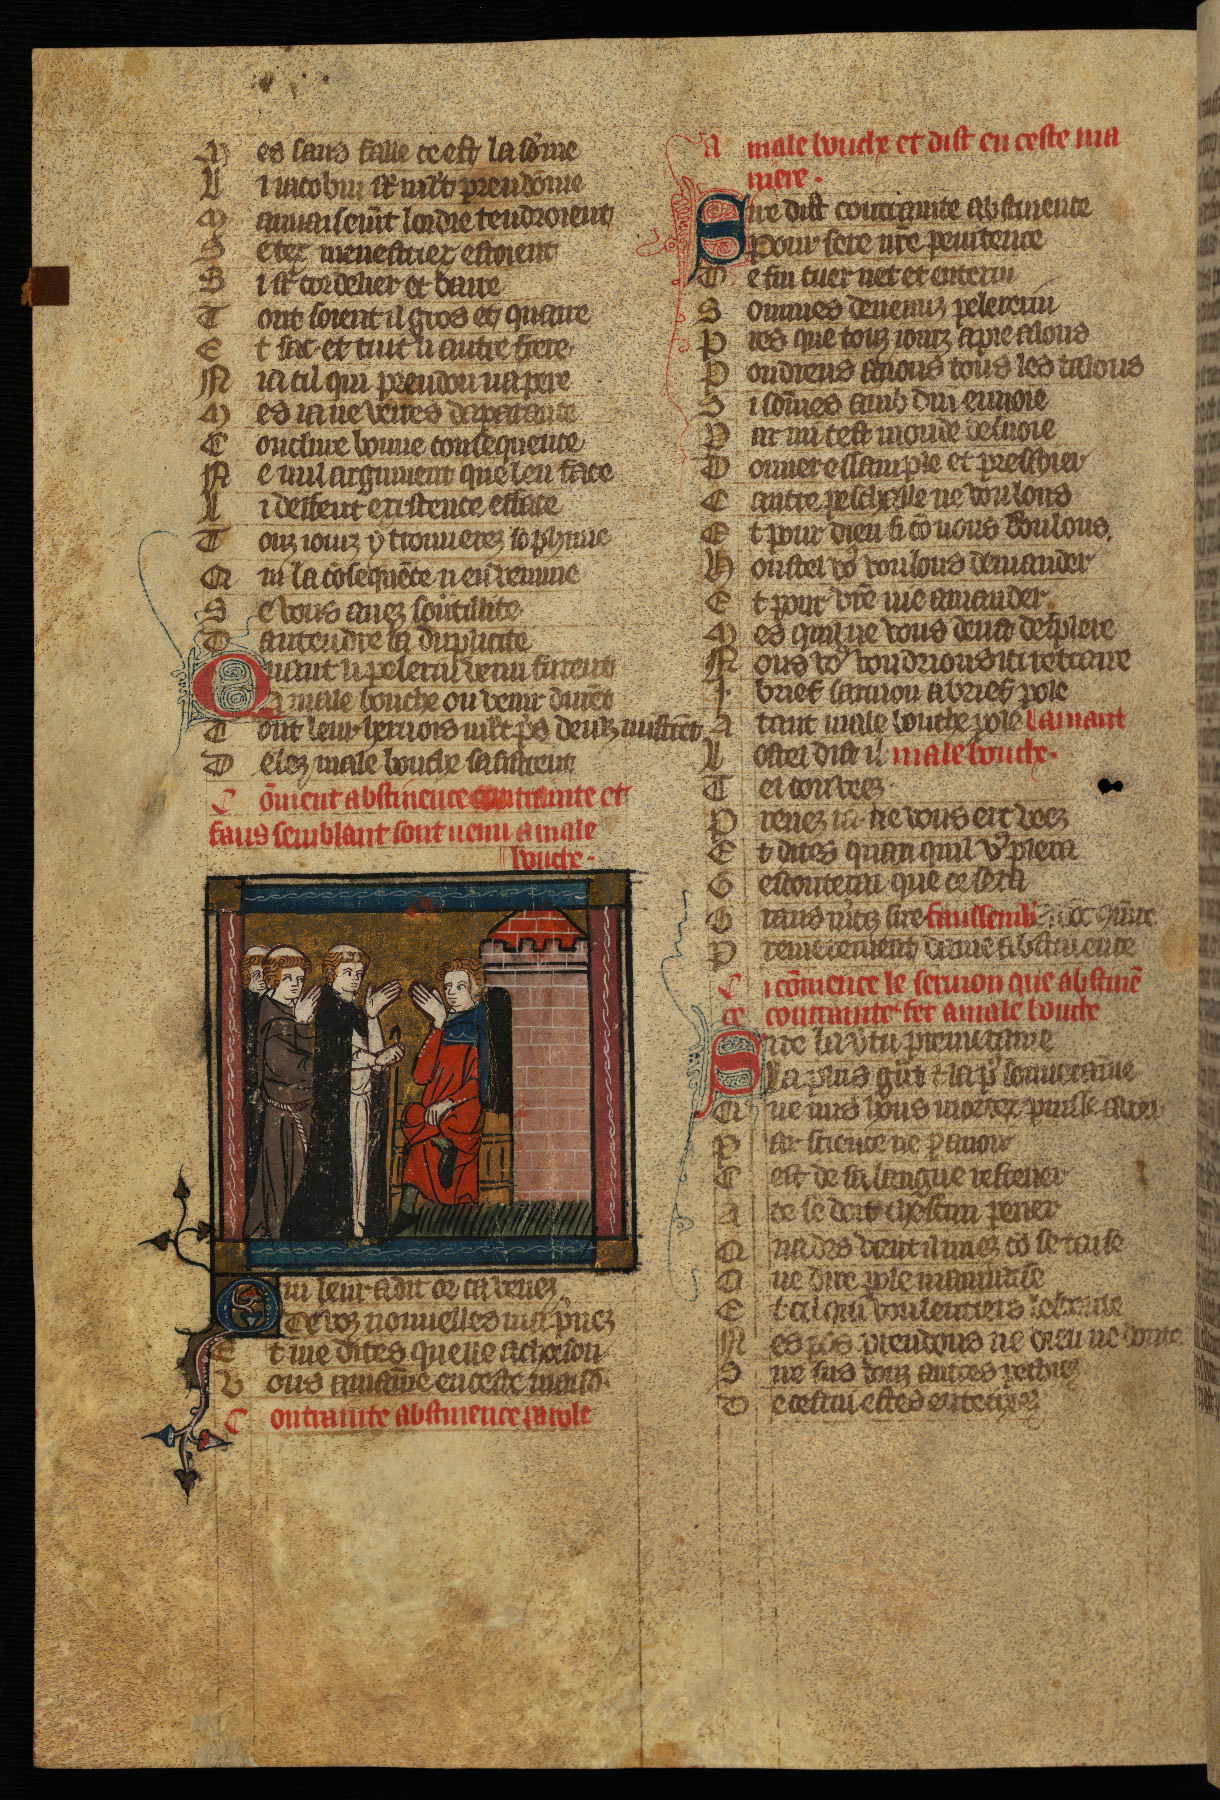 M es sans faille ce est la so᷑me
L i iacobin st᷑ tuit preudo᷑me
M auuaisem᷑t lordre tendroient
S e tex menestrier estoient
S i st᷑ cordelier et barre
T out soient il gros et quarre
E t sac et tuit li autre frere
N i a cil qui preudon napere
M es ia ne verres daparance
C onclure bonne consequence
N e nul argument que len face
S e deffent existence efface
T ouz iours y trouuerez sophime
Q ui la co᷑sequence en venime
S e vous auez soutillite
D antendre la duplicite
Quant li pelerin venu furent
A male bouche ou venir durent
T out leur hernois m᷑lt pres deulz mistrent
D elez male bouche sasistrent
C o᷑ment abstinence contrainte et
faus semblant sont uenu a male
bouche.
Qui leur a dit or ca venez
De voz nouuelles maprenez
E t me dites quelle achoison
V ous amaine en ceste maison
C ontrainte abstinence parole
A male bouche et dist en ceste ma
niere.
Sire dist contrainte abstinence
Pour fere nr᷑e penitence
D e fin cuer net et enterin
S ommes deuenuz pelerin
P res que touz iourz a pie alons
P oudreus auons touz les talons
S i so᷑mes amb dui enuoie
P ar mi cest monde desuoie
D onner essample et preschier
C autre pescherie ne voulons
E t pour dieu si co᷑ nous soulons
H ostel vo᷑ voulons demander
E t pour vr᷑e vie amander
M es quil ne vous deust desplere
N ous vo᷑ voudrions ici retraire
J . brief sarmon a brief pole
A tant male bouche pole lamant
L ostel dist il male bouche.
T el con veez
P renez ia ne vous ert veez
E t dites quan quil vo᷑ plera
G escouterai que ce sera
G rans m᷑ciz sire faussemb᷑
P remierement dame abstinence
C i co᷑mence le sermon que abstine᷑
ce contrainte fet a male bouche
Sire la v᷑tu premeraine
La plus gr᷑nt et la p᷑ souueraine
Q ue nus hons mortex puisse auoir
P ar science ne p᷑ auoir
C est de sa langue refrener
A ce se doit chascun pener
Q uades vient il miex co᷑ se taise
Q ue dire pole mauuaise
E t cil qui voulentiers lescoute
N es pas preudons ne dieu ne doute
S ire sus touz autres pechiez
D e cestui estes entechiez